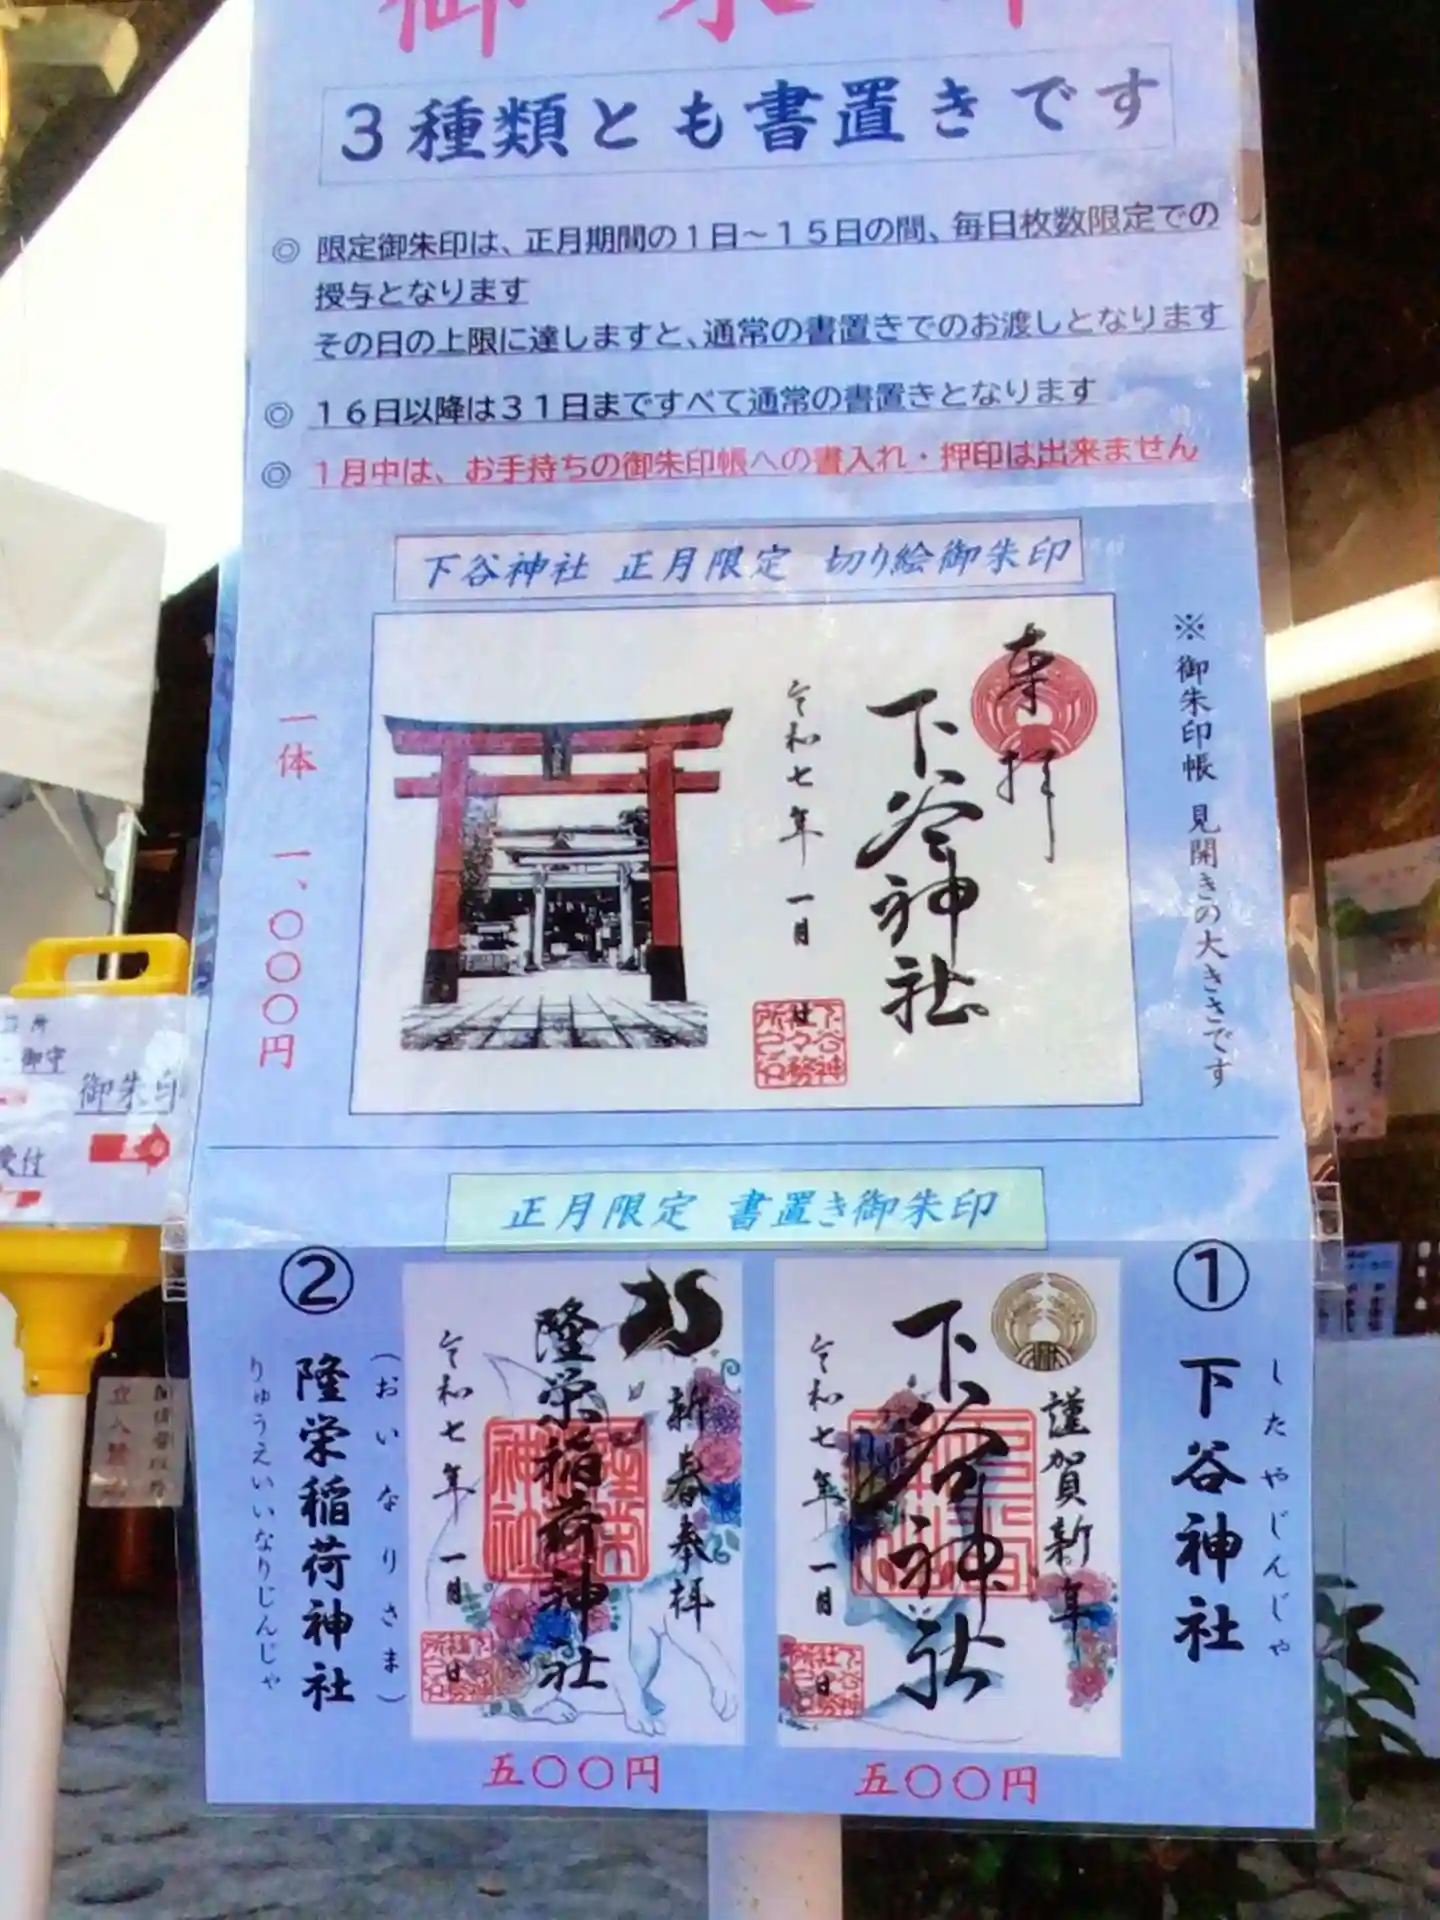 御朱印
3種類とも書置きです
◎ 限定御朱印は、正月期間の1日～15日の間、毎日枚数限定での
授与となります
その日の上限に達しますと、通常の書置きでのお渡しとなります
◎ 16日以降は31日まですべて通常の書置きとなります
◎ 1月中は、お手持ちの御朱印帳への書入れ・押印は出来ません
下谷神社 正月限定 切り絵御朱印
※御朱印帳 見開きの大きさです
奉拝
下谷神社
令和七年 一月 日
一体 一、〇〇〇円
正月限定 書置き御朱印
①
下谷神社
したやじんじゃ
謹賀新年
下谷神社
令和七年 一月 日
五〇〇円
②
(おいなりさま)
隆栄稲荷神社
りゅうえいいなりじんじゃ
新春奉拝
隆栄稲荷神社
令和七年 一月 日
五〇〇円
御守
御朱印
受付